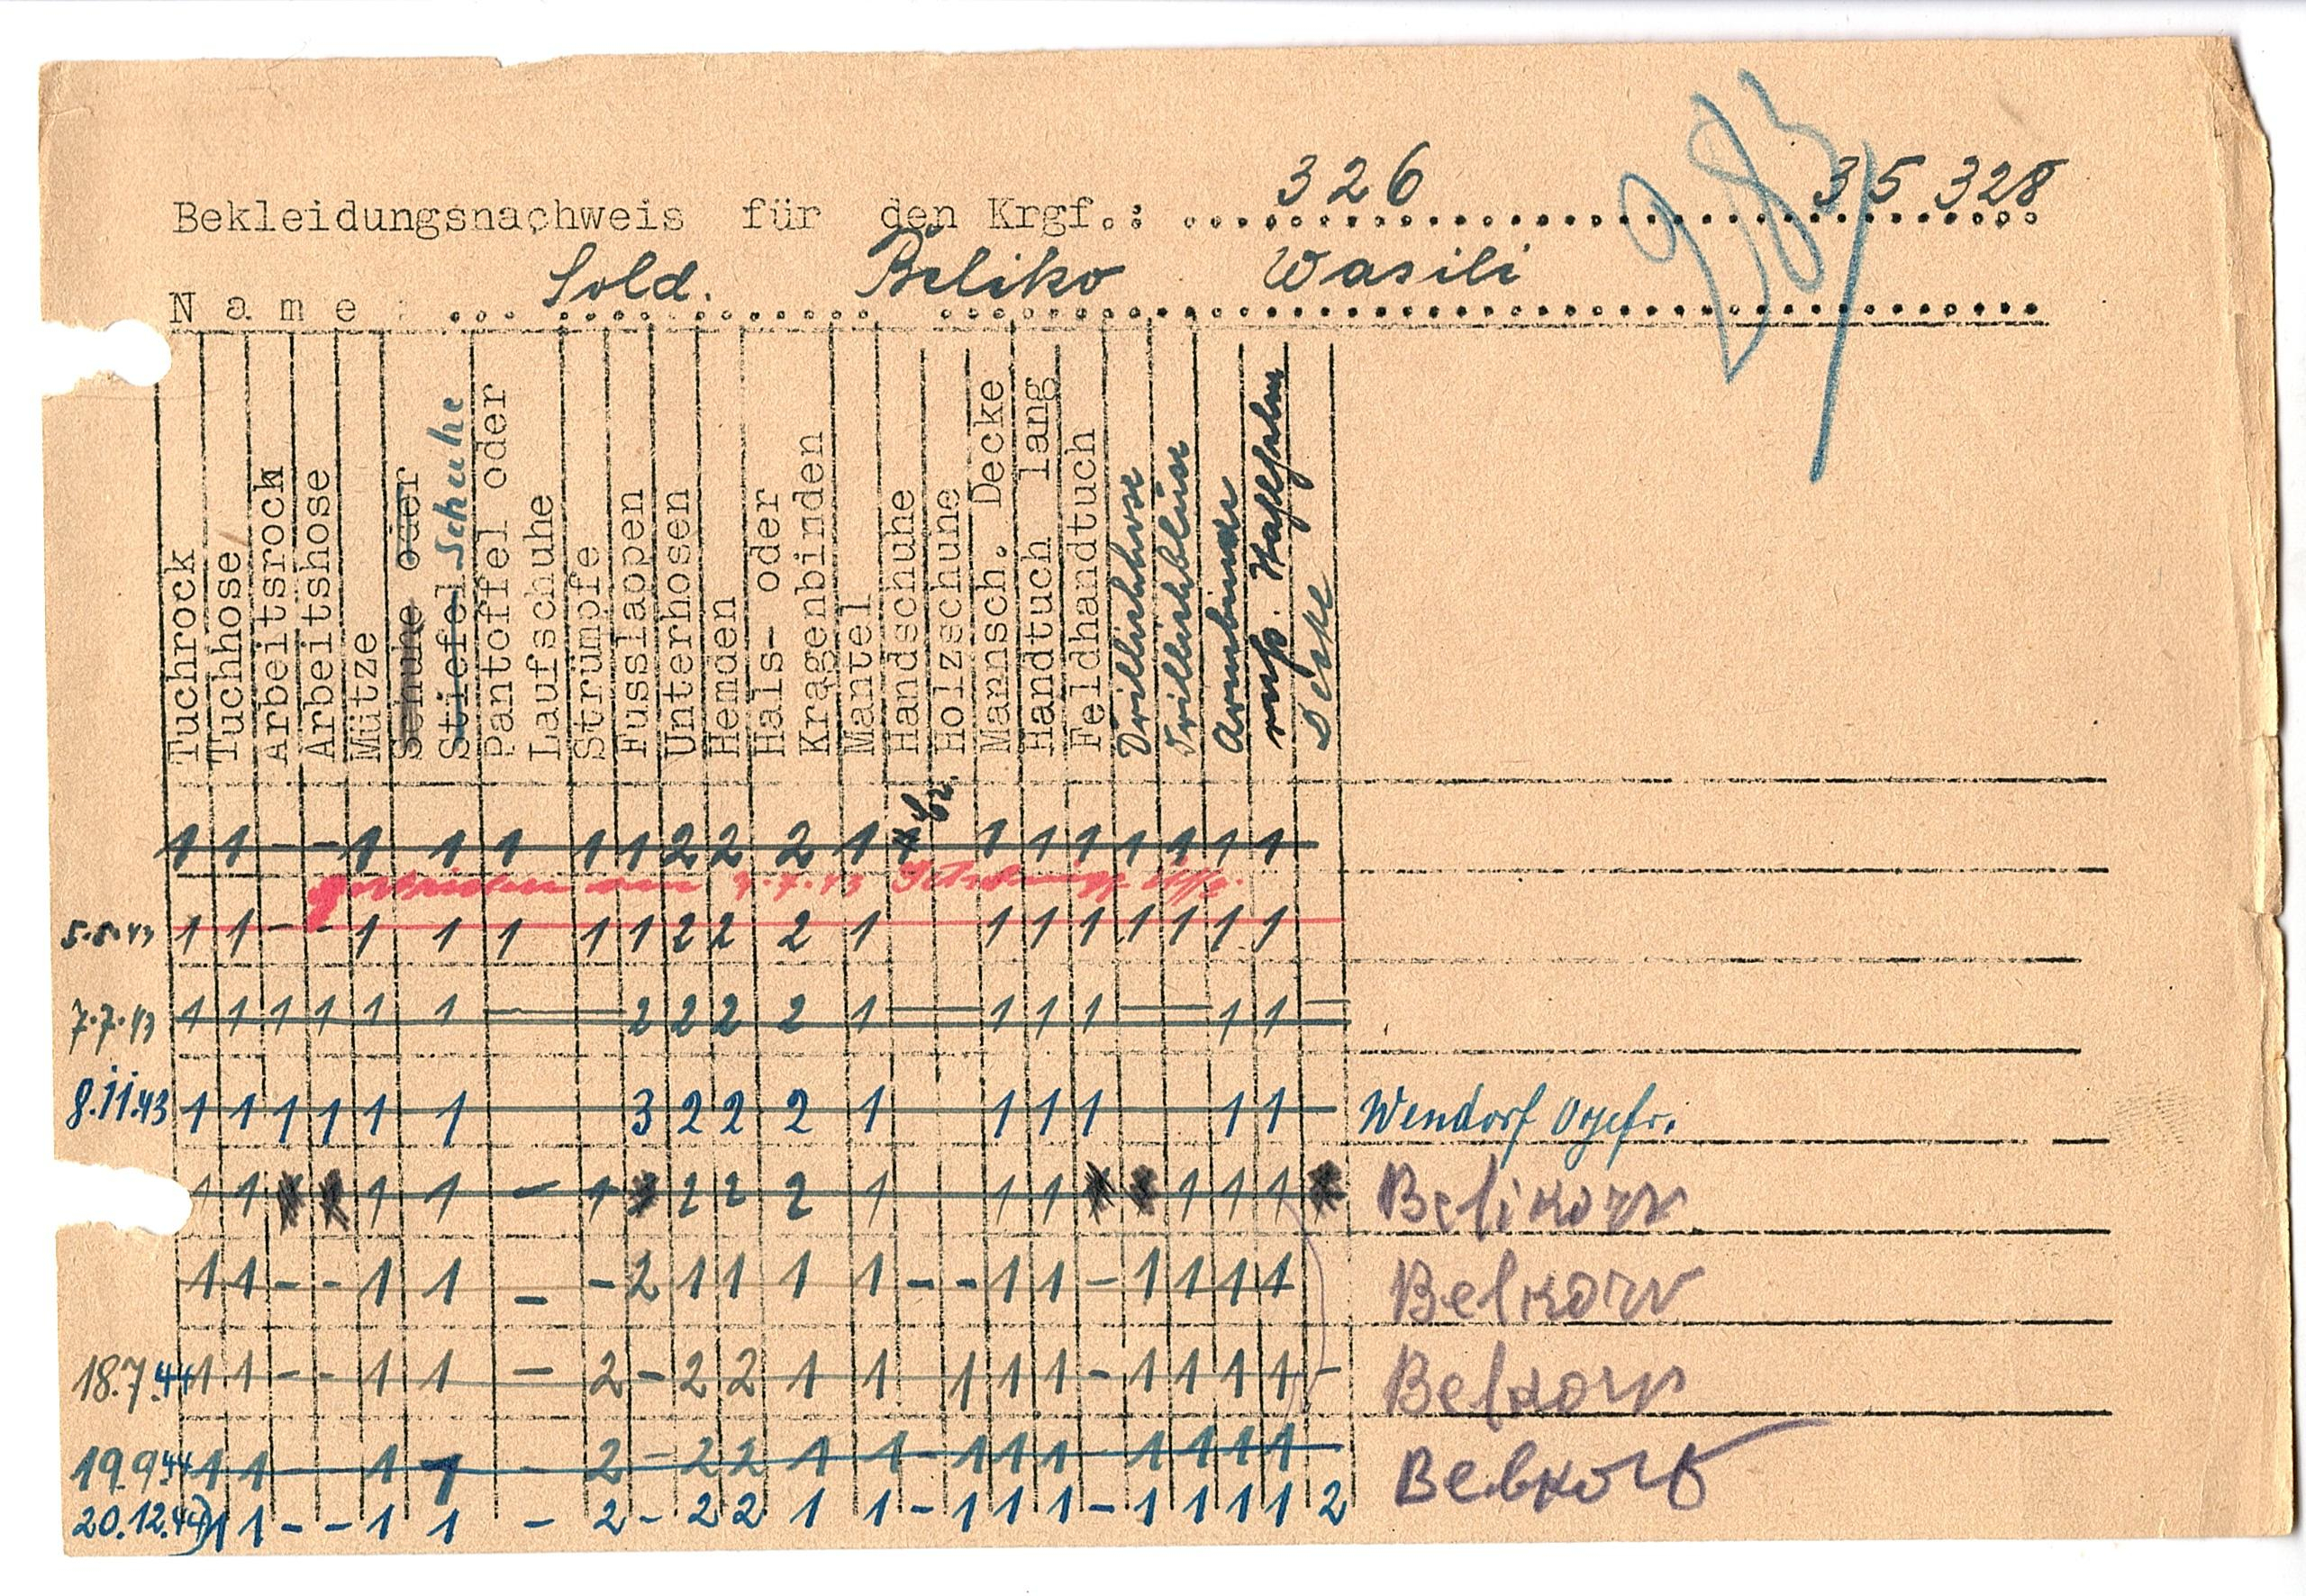 Bekleidungsnachweis für den Krgf.: 326 35 328
Name: Sold. Beliko Wasili
983/
Tuchrock
Tuchhose
Arbeitsrock
Arbeitshose
Mütze
Schuhe oder
Stiefel Schuhe
Pantoffel oder
Laufschuhe
Strümpfe
Fusslappen
Unterhosen
Hemden
Hals- oder
Kragenbinden
Mantel
Handschuhe
Holzschuhe
Mannsch. Decke
Handtuch lang
Feldhandtuch
Drillichhose
Drillichblüse
Armbinde
russ.
Decke
1 1 - - 1 1 1 1 1 2 2 2 1 1 1 1 1 1 1 1 1
am 7.7.43
5.5.43 1 1 - - 1 1 1 1 1 2 2 2 1 1 1 1 1 1 1 1
7.7.43 1 1 1 1 1 1 — 2 2 2 2 1 — 1 1 1 — 1 1 —
8.11.43 1 1 1 1 1 1 3 2 2 2 1 1 1 1 1 1 Wendorf Ogefr.
1 1 1 1 - 1 2 2 2 1 1 1 1 1 1 Belikow
1 1 - - 1 1 - - 2 1 1 1 1 - - 1 1 - 1 1 1 1 Belkow
18.7.44 1 1 - - 1 1 - 2 - 2 2 1 1 1 1 1 - 1 1 1 1 - Belkow
19.9.44 1 1 1 1 - 2 - 2 2 1 1 - 1 1 1 1 1 1 1 Belkow
20.12.44 1 1 - - 1 1 - 2 - 2 2 1 1 - 1 1 1 - 1 1 1 1 2